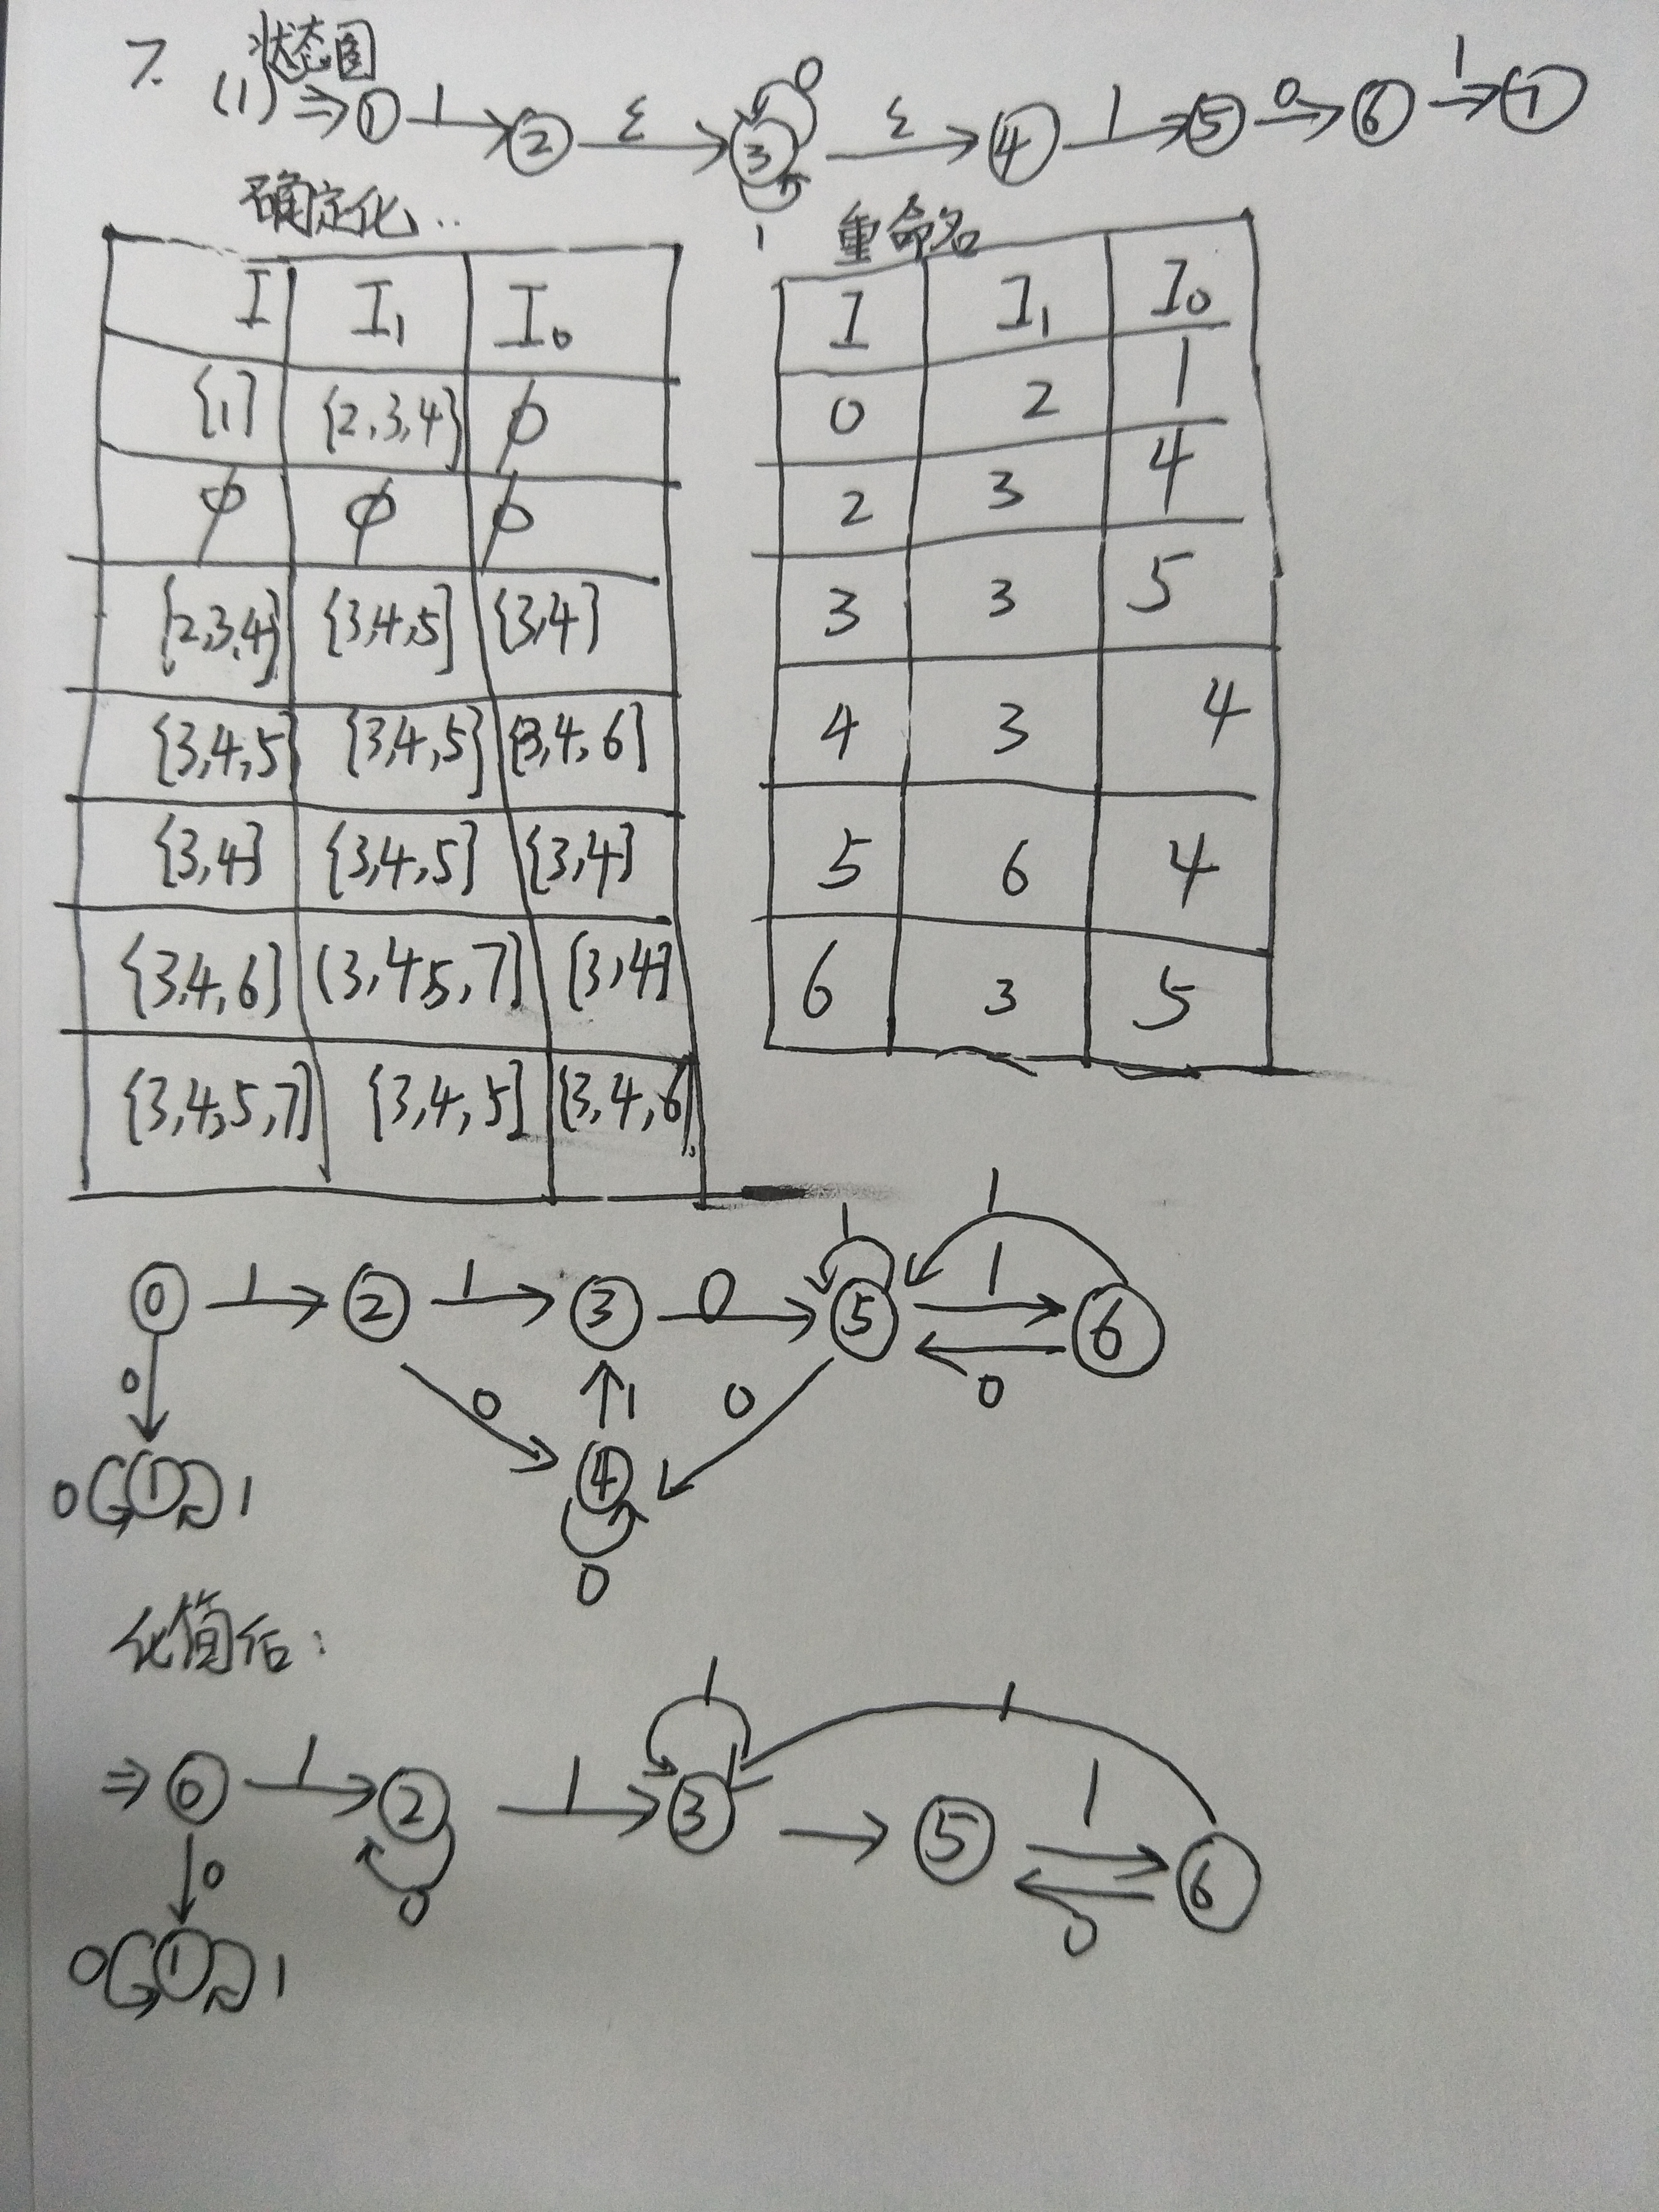 7. 状态图
(1) ⇒ ① 1 ② ε ③ 0 1 ε ④ 1 ⑤ 0 ⑥ 1 ⑦
确定化..
I I₁ I₀
{1} {2,3,4} ϕ
ϕ ϕ ϕ
{2,3,4} {3,4,5} {3,4}
{3,4,5} {3,4,5} {3,4,6}
{3,4} {3,4,5} {3,4}
{3,4,6} {3,4,5,7} {3,4}
{3,4,5,7} {3,4,5} {3,4,6}
重命名
I I₁ I₀
0 2 1
2 3 4
3 3 5
4 3 4
5 6 4
6 3 5
1 1
⓪ 1 ② 1 ③ 0 ⑤ 1 ⑥
0 0 1 0 0
0 ① 1 ④
0
化简后:
1 1
⇒ ⓪ 1 ② 1 ③ ⑤ 1 ⑥
0 0 0
0 ① 1